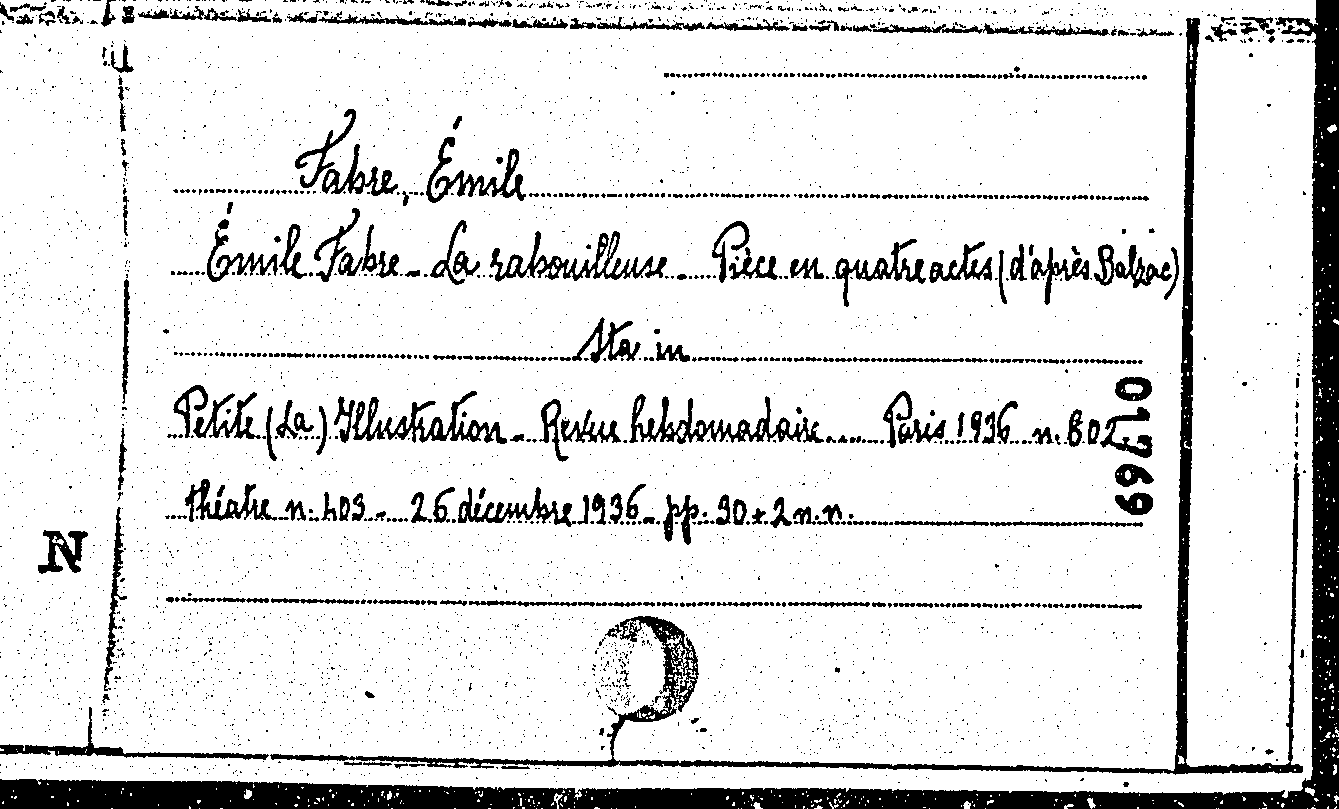 Fabre, Émile
Émile Fabre - La rabouilleuse - Pièce en quatre actes (d'après Balzac)
Sta in
Petite (La) Illustration - Revue hebdomadaire.... Paris 1936 n. 802
théatre n. 403 - 26 décembre 1936 - pp. 30 + 2 n.n.
01769
N